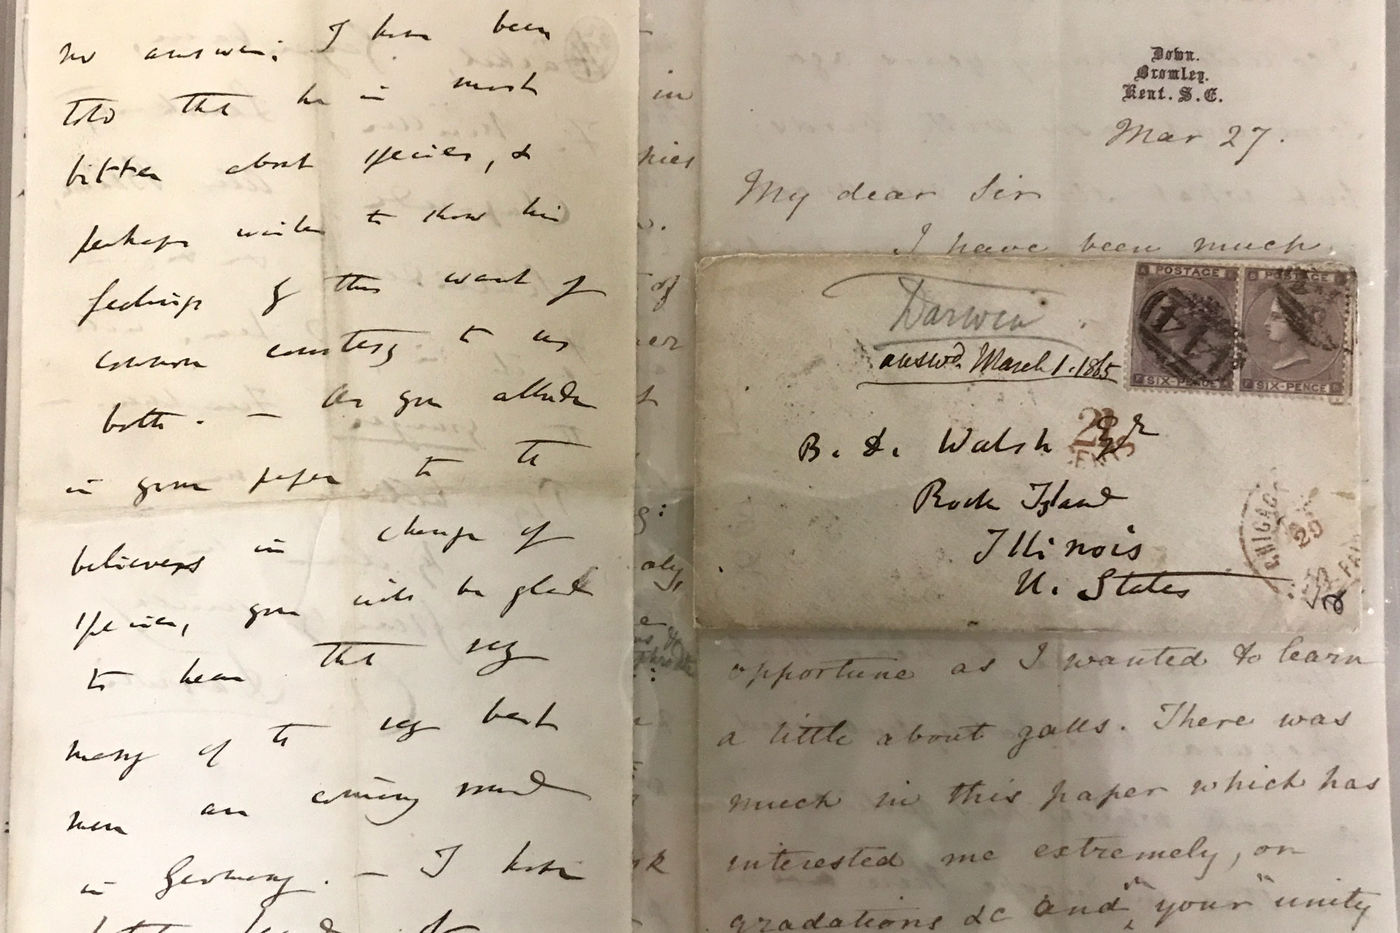 no answer; I have been
told that he is most
bitter about species, &
perhaps wishes to show his
feelings by this want of
common courtesy to us
both. — As you allude
in your paper to the
believers in change of
species, you will be glad
to hear that very
many of the very best
men are coming round
in Germany. — I have
Down.
Bromley.
Kent. S.E.
Mar 27.
My dear Sir
I have been much
POSTAGE
POSTAGE
SIX-PENCE
SIX-PENCE
Darwin
answd. March 1. 1865
B. D. Walsh Esqr
Rock Island
Illinois
U. States
CHICAGO
opportune as I wanted to learn
a little about galls. There was
much in this paper which has
interested me extremely, on
gradations &c and, "your" unity